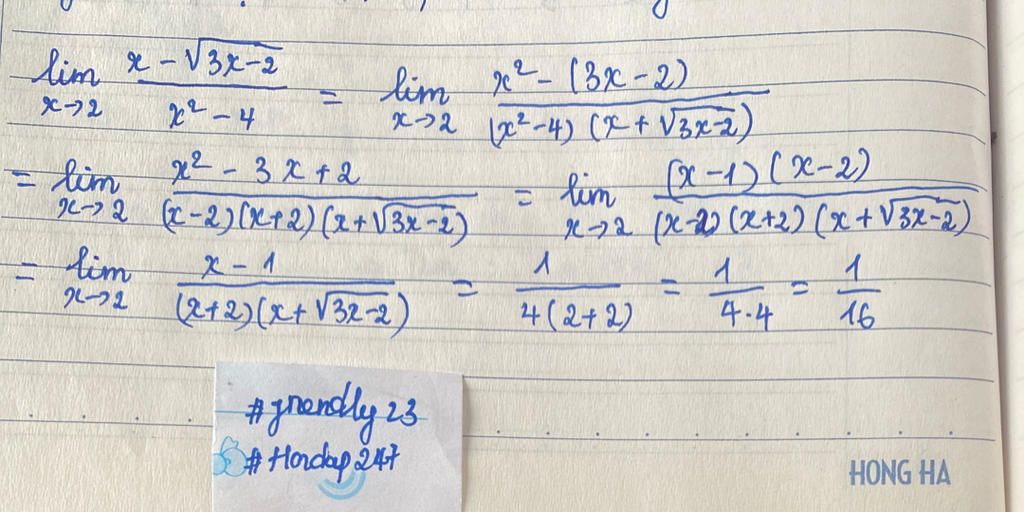 lim x→2 (x - √(3x-2)) / (x² - 4) = lim x→2 (x² - (3x - 2)) / ((x² - 4)(x + √(3x-2)))
= lim x→2 (x² - 3x + 2) / ((x-2)(x+2)(x+√(3x-2))) = lim x→2 ((x-1)(x-2)) / ((x-2)(x+2)(x+√(3x-2)))
= lim x→2 (x - 1) / ((x+2)(x+√(3x-2))) = 1 / (4(2+2)) = 1 / (4·4) = 1/16
#friendly23
#Hoidap247
HONG HA